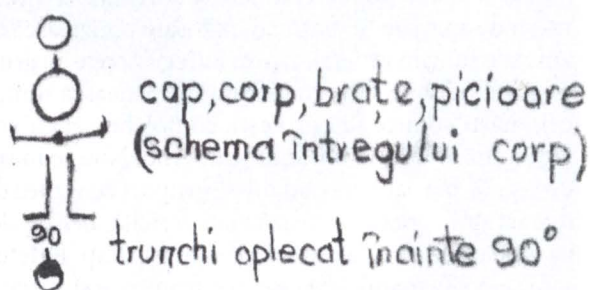 cap, corp, brațe, picioare
(schema întregului corp)
90
trunchi aplecat înainte 90°